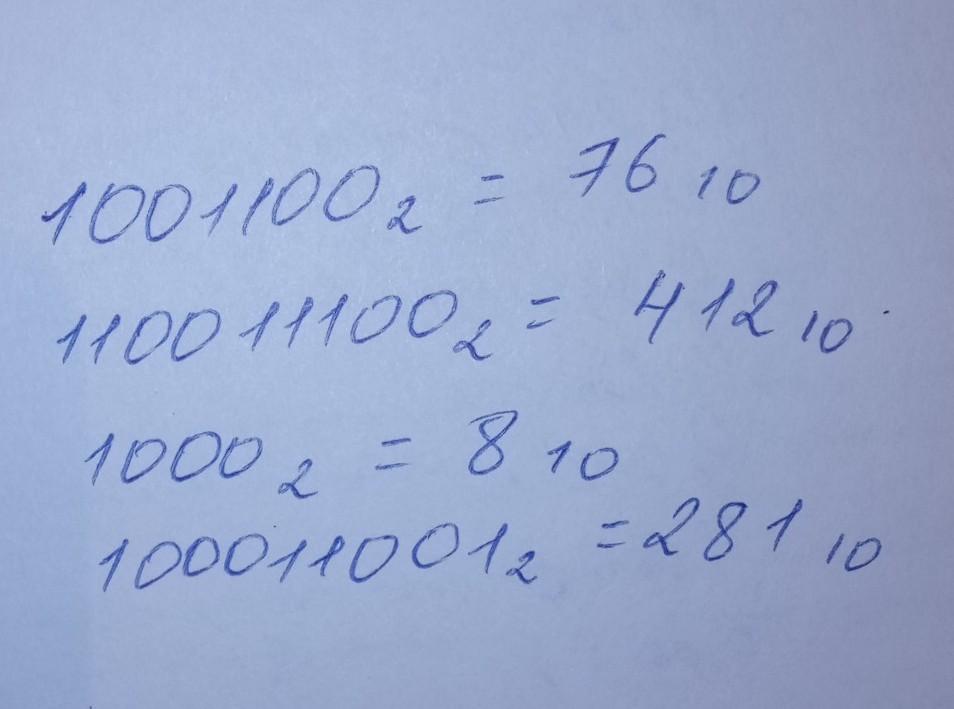 1001100₂ = 76₁₀
110011100₂ = 412₁₀
1000₂ = 8₁₀
100011001₂ = 281₁₀